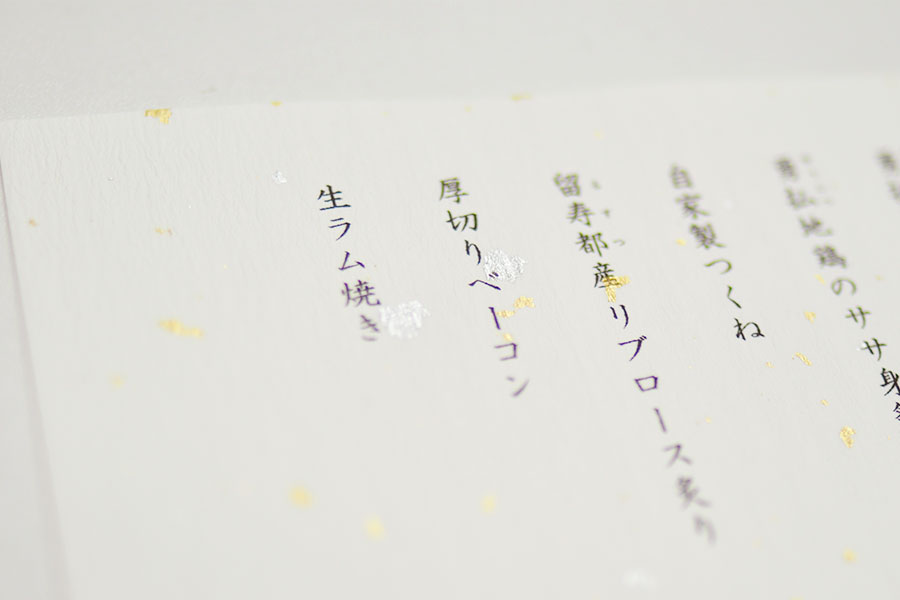 地鶏のササ身
自家製つくね
留寿都産リブロース炙り
るすつ
厚切りベーコン
生ラム焼き